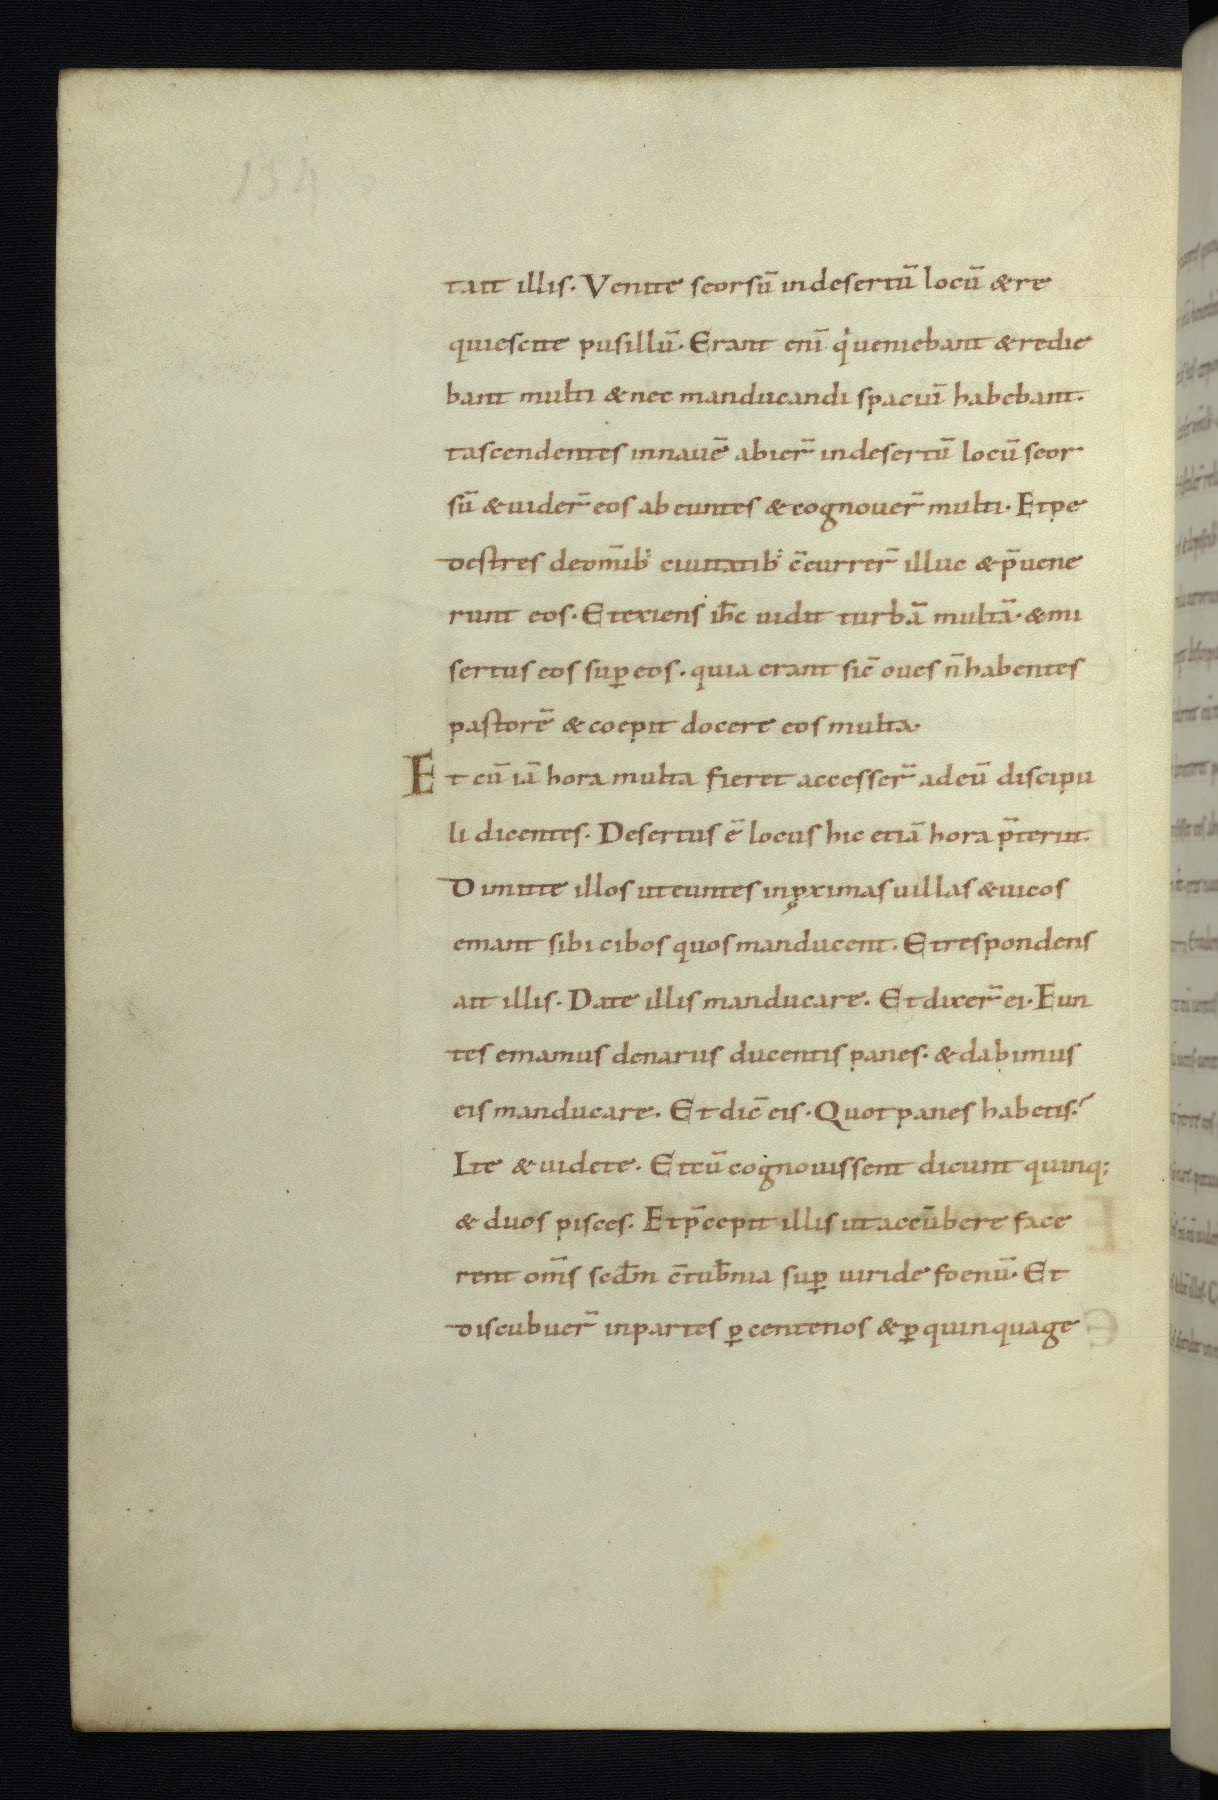 134
t ait illis. Venite seorsū in desertū locū & re
quiescite pusillū. Erant enī q̇ ueniebant & redie
bant multi & nec manducandi spaciū habebant.
t ascendentes in nauē abier̄ in desertū locū seor
sū & uider̄ eos abeuntes & cognouer̄ multi. Et pe
destres de om̄ib; ciuitatib; c̄currer̄ illuc & p̄uene
runt eos. Et exiens ih̄c uidit turbā multā. & mi
sertus eos suꝑ eos. quia erant sic̄ oues n̄ habentes
pastorē & coepit docere eos multa.
Et cū iā hora multa fieret accesser̄ ad eū discipu
li dicentes. Desertus ē locus hic et iā hora p̄teriit.
Dimitte illos ut euntes in ꝓximas uillas & uicos
emant sibi cibos quos manducent. Et respondens
ait illis. Date illis manducare. Et dixer̄ ei. Eun
tes emamus denariis ducentis panes. & dabimus
eis manducare. Et dic̄ eis. Quot panes habetis?
Ite & uidete. Et cū cognouissent dicunt quinq;
& duos pisces. Et p̄cepit illis ut accūbere face
rent om̄s scdm̄ c̄tub̄nia suꝑ uiride foenū. Et
discubuer̄ in partes ꝑ centenos & ꝑ quinquage